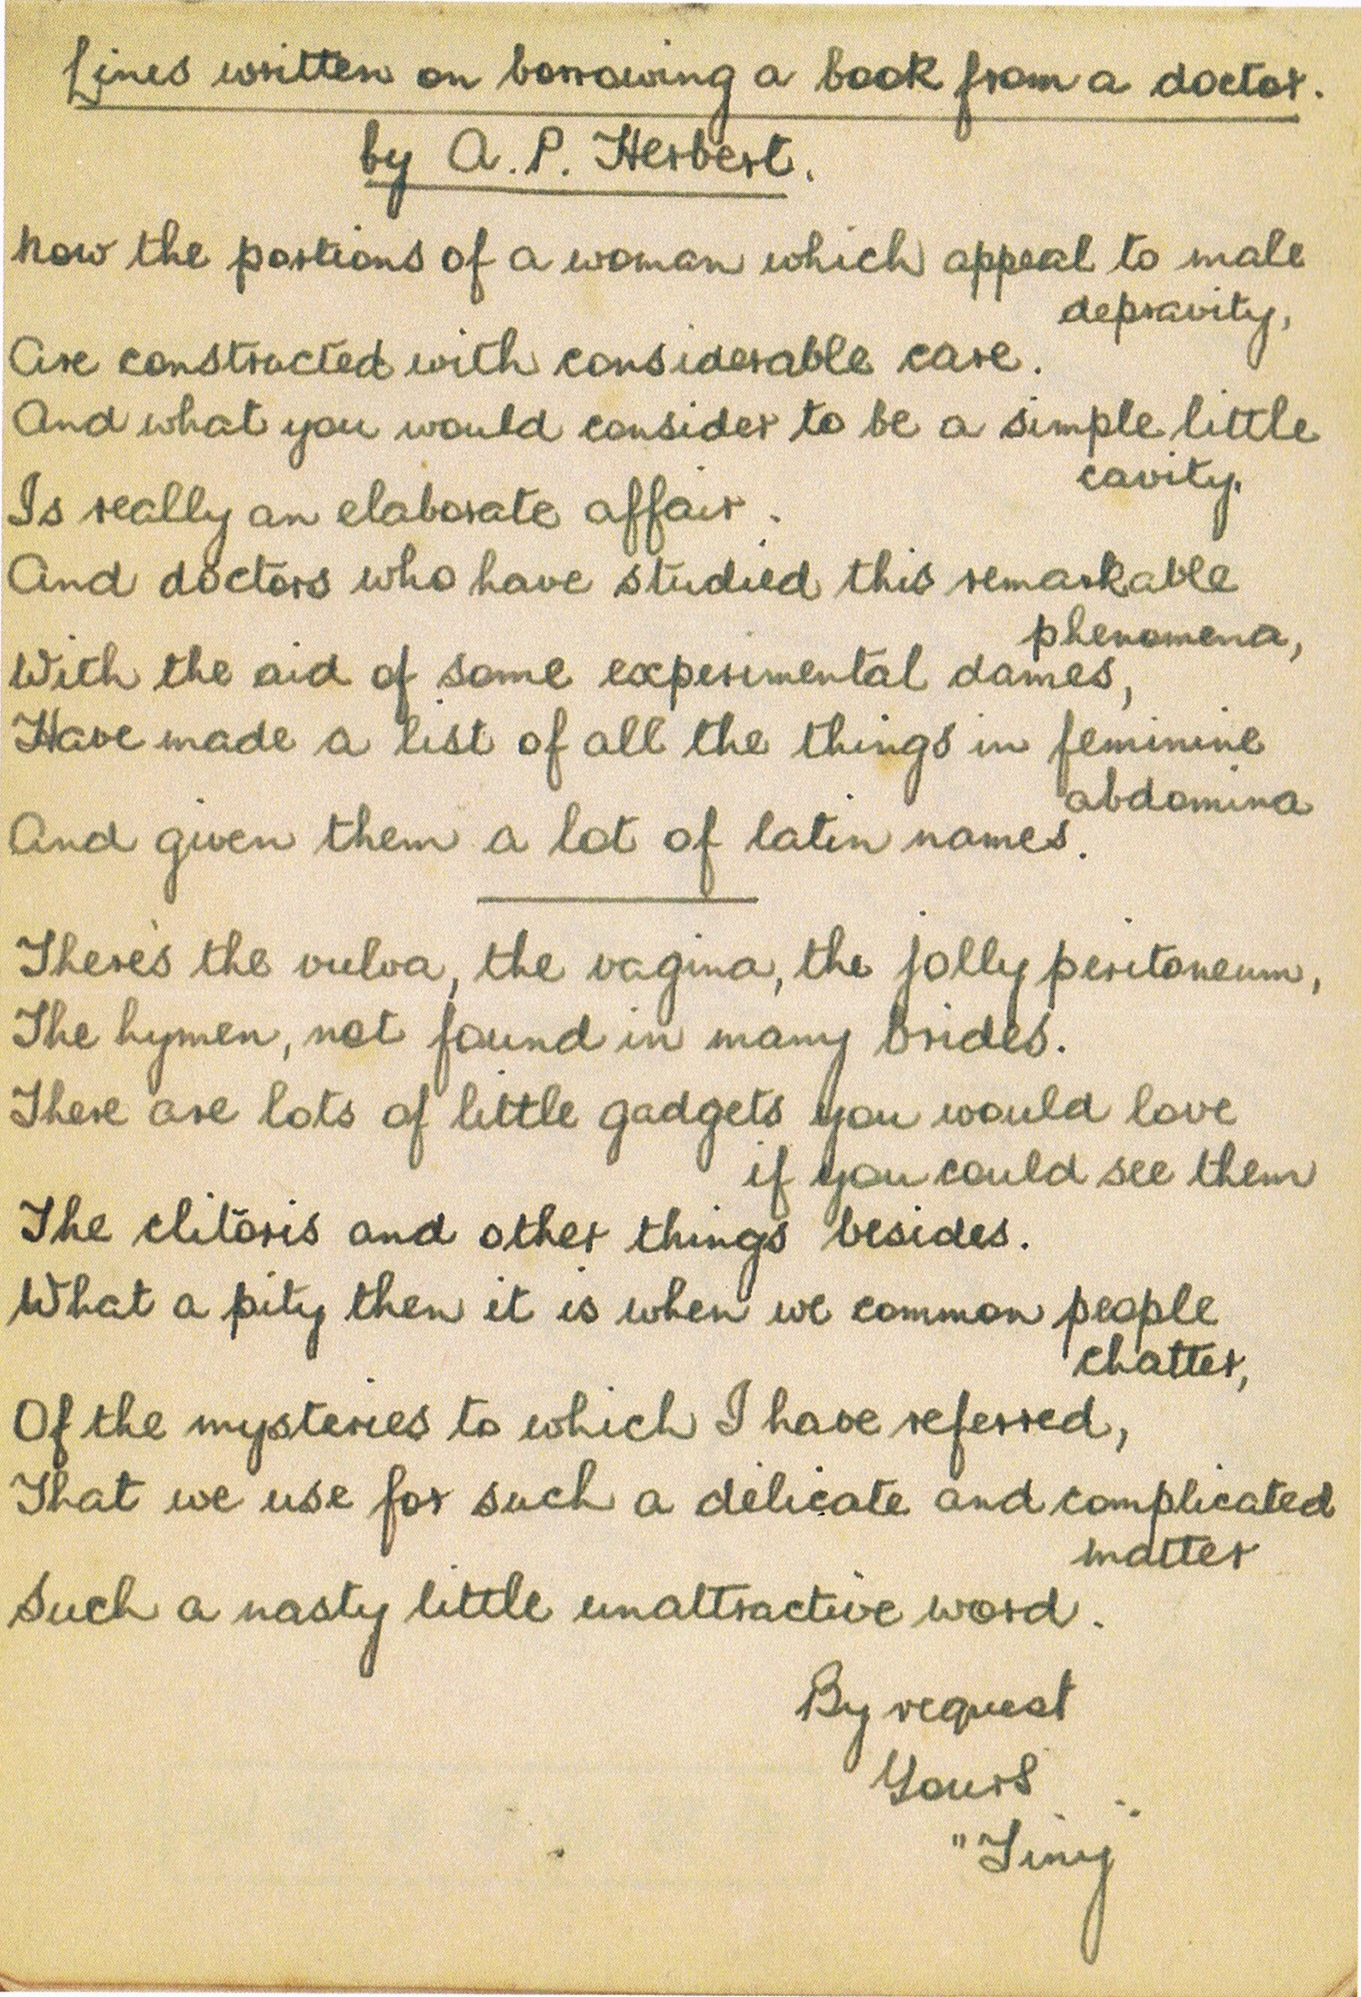 Lines written on borrowing a book from a doctor.
by A. P. Herbert.
Now the portions of a woman which appeal to male
depravity,
Are constructed with considerable care.
And what you would consider to be a simple little
cavity.
Is really an elaborate affair.
And doctors who have studied this remarkable
phenomena,
With the aid of some experimental dames,
Have made a list of all the things in feminine
abdomina
And given them a lot of latin names.
There's the vulva, the vagina, the jolly peritoneum,
The hymen, not found in many brides.
There are lots of little gadgets you would love
if you could see them
The clitoris and other things besides.
What a pity then it is when we common people
chatter,
Of the mysteries to which I have referred,
That we use for such a delicate and complicated
matter
Such a nasty little unattractive word.
By request
Yours
"Tiny"